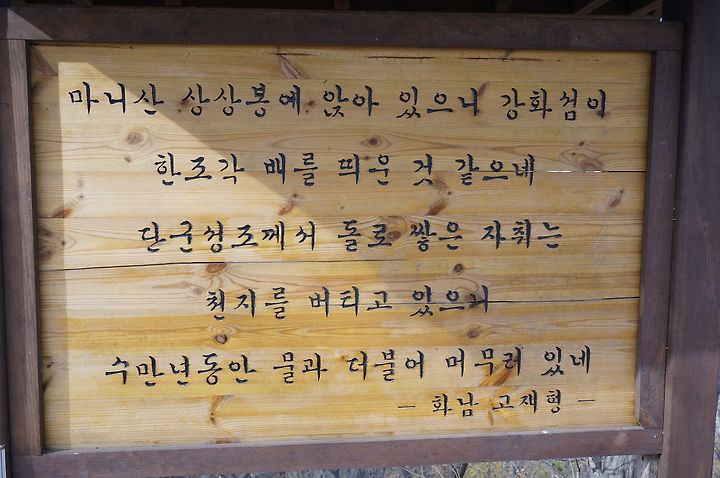 마니산 상상봉에 앉아 있으니 강화섬이
한조각 배를 띄운 것 같으네
단군성조께서 돌로 쌓은 자취는
천지를 버티고 있으니
수만년동안 물과 더불어 머무러 있네
- 화남 고재형 -